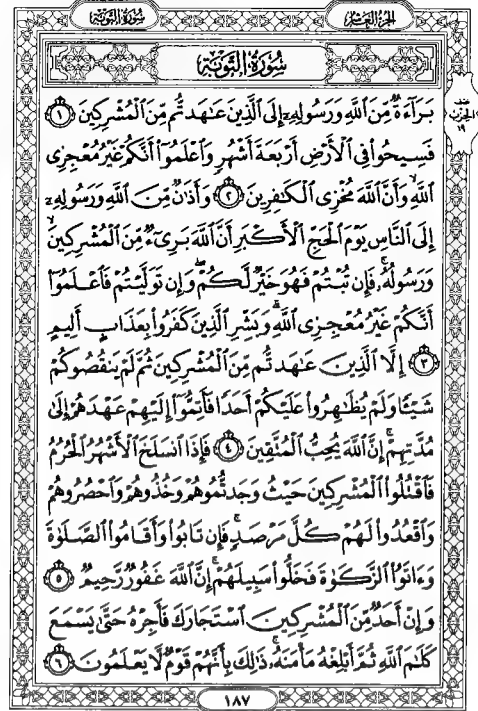 سُورَةُ التَّوْبَةِ
الجُزْءُ العَاشِرُ
سُورَةُ التَّوْبَةِ
نصف
الحزب
١٩
بَرَآءَةٌ مِّنَ ٱللَّهِ وَرَسُولِهِۦٓ إِلَى ٱلَّذِينَ عَٰهَدتُّم مِّنَ ٱلْمُشْرِكِينَ ١
فَسِيحُوا۟ فِى ٱلْأَرْضِ أَرْبَعَةَ أَشْهُرٍ وَٱعْلَمُوٓا۟ أَنَّكُمْ غَيْرُ مُعْجِزِى
ٱللَّهِ ۙ وَأَنَّ ٱللَّهَ مُخْزِى ٱلْكَٰفِرِينَ ٢ وَأَذَٰنٌ مِّنَ ٱللَّهِ وَرَسُولِهِۦٓ
إِلَى ٱلنَّاسِ يَوْمَ ٱلْحَجِّ ٱلْأَكْبَرِ أَنَّ ٱللَّهَ بَرِىٓءٌ مِّنَ ٱلْمُشْرِكِينَ ۙ
وَرَسُولُهُۥ ۚ فَإِن تُبْتُمْ فَهُوَ خَيْرٌ لَّكُمْ ۖ وَإِن تَوَلَّيْتُمْ فَٱعْلَمُوٓا۟
أَنَّكُمْ غَيْرُ مُعْجِزِى ٱللَّهِ ۗ وَبَشِّرِ ٱلَّذِينَ كَفَرُوا۟ بِعَذَابٍ أَلِيمٍ
٣ إِلَّا ٱلَّذِينَ عَٰهَدتُّم مِّنَ ٱلْمُشْرِكِينَ ثُمَّ لَمْ يَنقُصُوكُمْ
شَيْـًٔا وَلَمْ يُظَٰهِرُوا۟ عَلَيْكُمْ أَحَدًا فَأَتِمُّوٓا۟ إِلَيْهِمْ عَهْدَهُمْ إِلَىٰ
مُدَّتِهِمْ ۚ إِنَّ ٱللَّهَ يُحِبُّ ٱلْمُتَّقِينَ ٤ فَإِذَا ٱنسَلَخَ ٱلْأَشْهُرُ ٱلْحُرُمُ
فَٱقْتُلُوا۟ ٱلْمُشْرِكِينَ حَيْثُ وَجَدتُّمُوهُمْ وَخُذُوهُمْ وَٱحْصُرُوهُمْ
وَٱقْعُدُوا۟ لَهُمْ كُلَّ مَرْصَدٍ ۚ فَإِن تَابُوا۟ وَأَقَامُوا۟ ٱلصَّلَوٰةَ
وَءَاتَوُا۟ ٱلزَّكَوٰةَ فَخَلُّوا۟ سَبِيلَهُمْ ۚ إِنَّ ٱللَّهَ غَفُورٌ رَّحِيمٌ ٥
وَإِنْ أَحَدٌ مِّنَ ٱلْمُشْرِكِينَ ٱسْتَجَارَكَ فَأَجِرْهُ حَتَّىٰ يَسْمَعَ
كَلَٰمَ ٱللَّهِ ثُمَّ أَبْلِغْهُ مَأْمَنَهُۥ ۚ ذَٰلِكَ بِأَنَّهُمْ قَوْمٌ لَّا يَعْلَمُونَ ٦
١٨٧